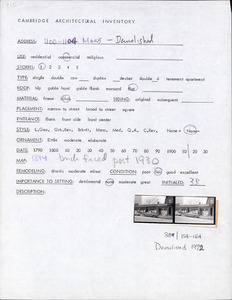 CAMBRIDGE ARCHITECTURAL INVENTORY
ADDRESS: 1100-1104 Mass - Demolished
USE: residential commercial religious
STORIES: 1 2 3 4 5
TYPE: single double row duplex decker double d tenement apartment
ROOF: hip gable front gable flank mansard flat
MATERIAL: frame brick SIDING: original subsequent
PLACEMENT: narrow to street broad to street square
ENTRANCE: flank front side front center
ORNAMENT: little moderate elaborate
DATE: 1790 1800 10 20 30 40 50 60 70 80 90 1900 10 20 30
MAP: 1894 brick faced post 1930
REMODELING: drastic moderate minor CONDITION poor fair good excellent
IMPORTANCE TO SETTING: detrimental none moderate great INITIALED:
DESCRIPTION:
Demolished 1972